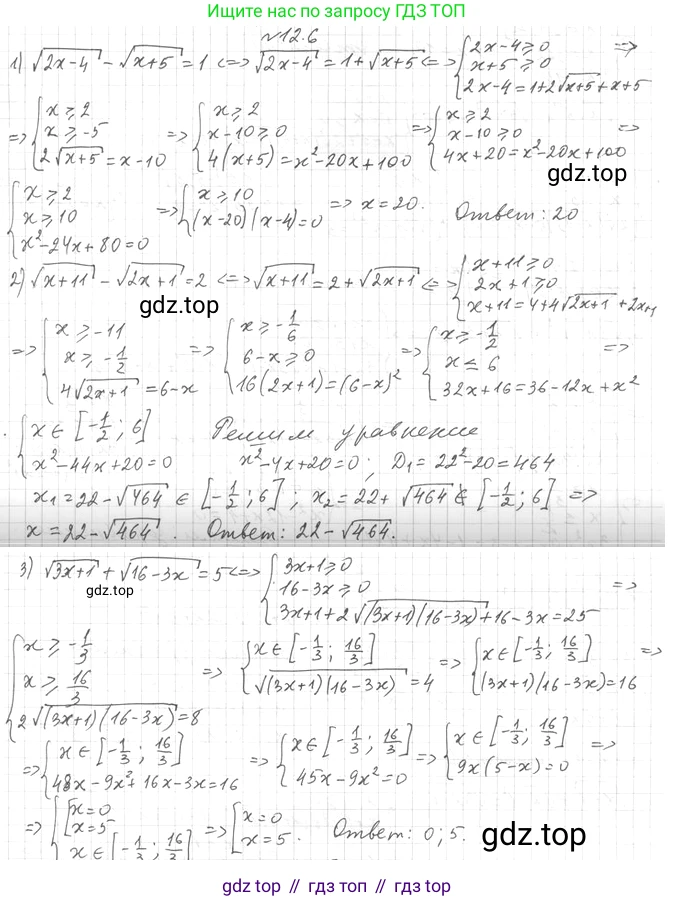 Ищите нас по запросу ГДЗ ТОП
№12.6
1) √(2x-4) - √(x+5) = 1 <=> √(2x-4) = 1+√(x+5) <=> { 2x-4⩾0; x+5⩾0; 2x-4=1+2√(x+5)+x+5 =>
=> { x⩾2; x⩾-5; 2√(x+5)=x-10 => { x⩾2; x-10⩾0; 4(x+5)=x²-20x+100 => { x⩾2; x-10⩾0; 4x+20=x²-20x+100 =>
gdz.top
{ x⩾2; x⩾10; x²-24x+80=0 => { x⩾10; (x-20)(x-4)=0 => x=20. Ответ: 20
2) √(x+11) - √(2x+1) = 2 <=> √(x+11) = 2+√(2x+1) <=> { x+11⩾0; 2x+1⩾0; x+11=4+4√(2x+1)+2x+1
gdz.top
=> { x⩾-11; x⩾-1/2; 4√(2x+1)=6-x => { x⩾-1/6; 6-x⩾0; 16(2x+1)=(6-x)² => { x⩾-1/2; x⩽6; 32x+16=36-12x+x² =>
{ x∈[-1/2; 6]; x²-44x+20=0 Решим уравнение
x²-4x+20=0; D₁=22²-20=464
x₁=22-√464 ∈ [-1/2; 6]; x₂=22+√464 ∉ [-1/2; 6] =>
x=22-√464. Ответ: 22-√464.
3) √(3x+1) + √(16-3x) = 5 <=> { 3x+1⩾0; 16-3x⩾0; 3x+1+2√((3x+1)(16-3x))+16-3x=25 =>
gdz.top
{ x⩾-1/3; x⩾16/3; 2√((3x+1)(16-3x))=8 => { x∈[-1/3; 16/3]; √((3x+1)(16-3x))=4 => { x∈[-1/3; 16/3]; (3x+1)(16-3x)=16 =>
=> { x∈[-1/3; 16/3]; 48x-9x²+16x-3x=16 => { x∈[-1/3; 16/3]; 45x-9x²=0 => { x∈[-1/3; 16/3]; 9x(5-x)=0 =>
=> { [x=0; x=5; x∈[-1/3; 16/3] => [x=0; x=5. Ответ: 0; 5.
gdz.top
gdz.top // гдз.топ // гдз.top